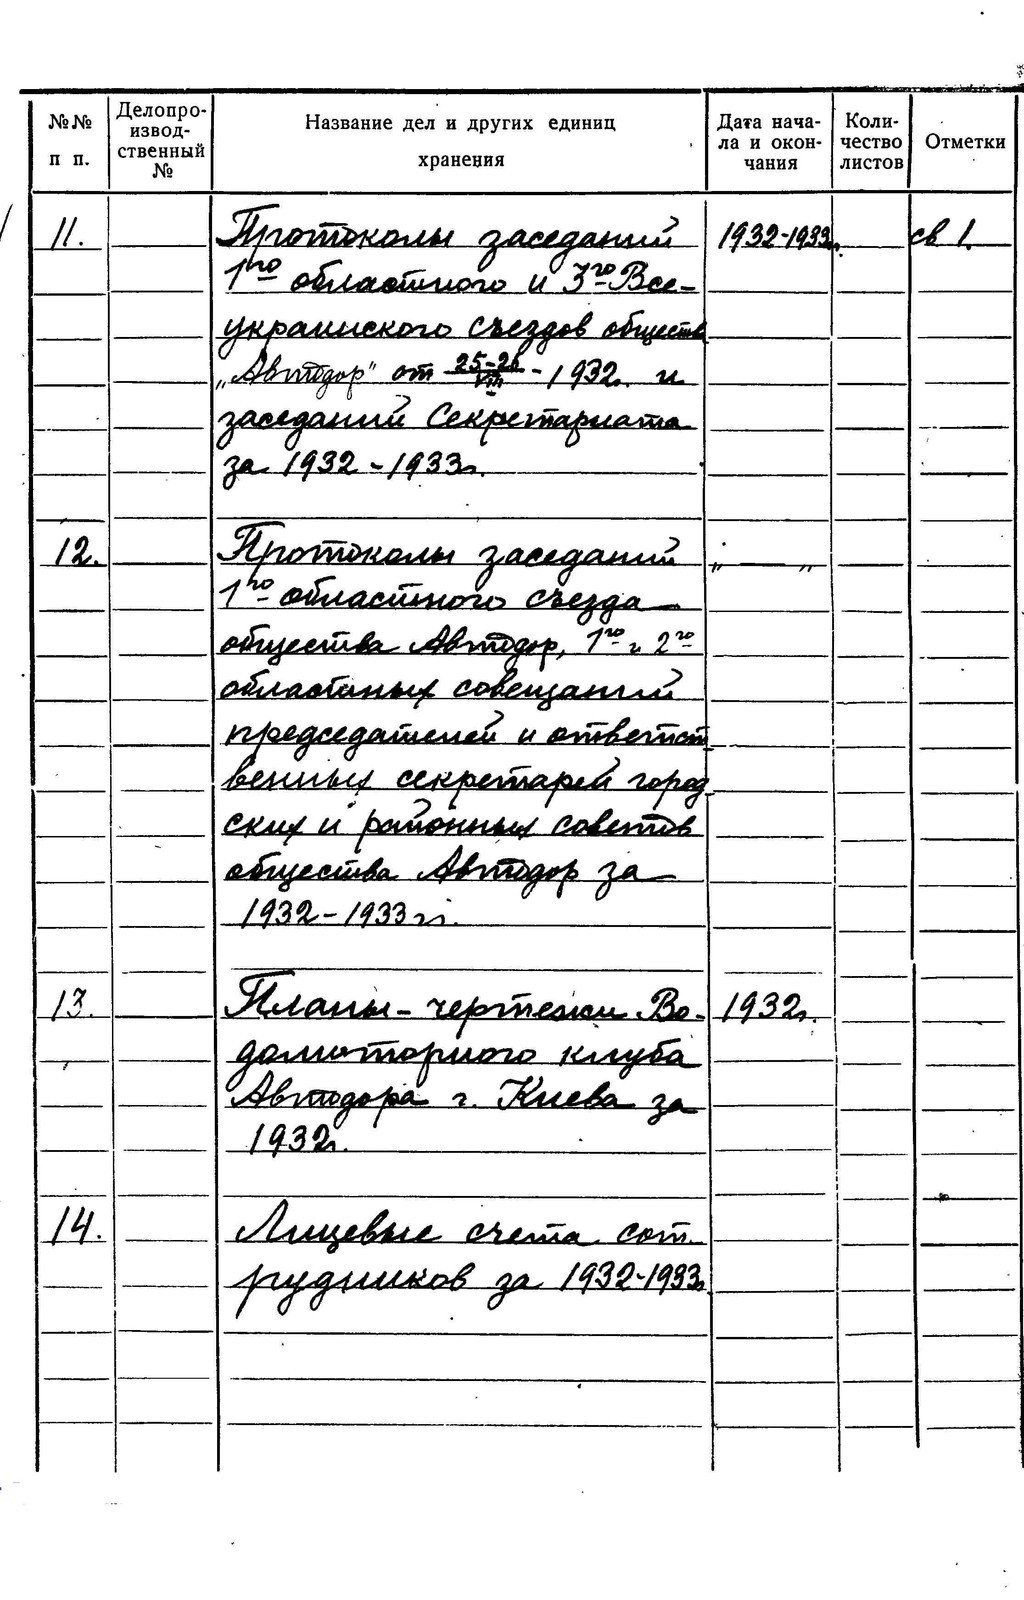 №№ п п. Делопроизводственный № Название дел и других единиц хранения Дата начала и окончания Количество листов Отметки
11. Протоколы заседаний 1932-1933г. св 1.
1го областного и 3го Все-
украинского съездов обществ
„Автодор" от 25-26/VIII - 1932г. и
заседаний Секретариата
за 1932-1933г.
12. Протоколы заседаний „ — „
1го областного съезда
общества Автодор, 1го и 2го
областных совещаний
председателей и ответст
венных секретарей город-
ских и районных советов
общества Автодор за
1932-1933гг.
13. Планы-чертежи Во- 1932г.
домоторного клуба
Автодора г. Киева за
1932г.
14. Лицевые счета сот-
рудников за 1932-1933г.